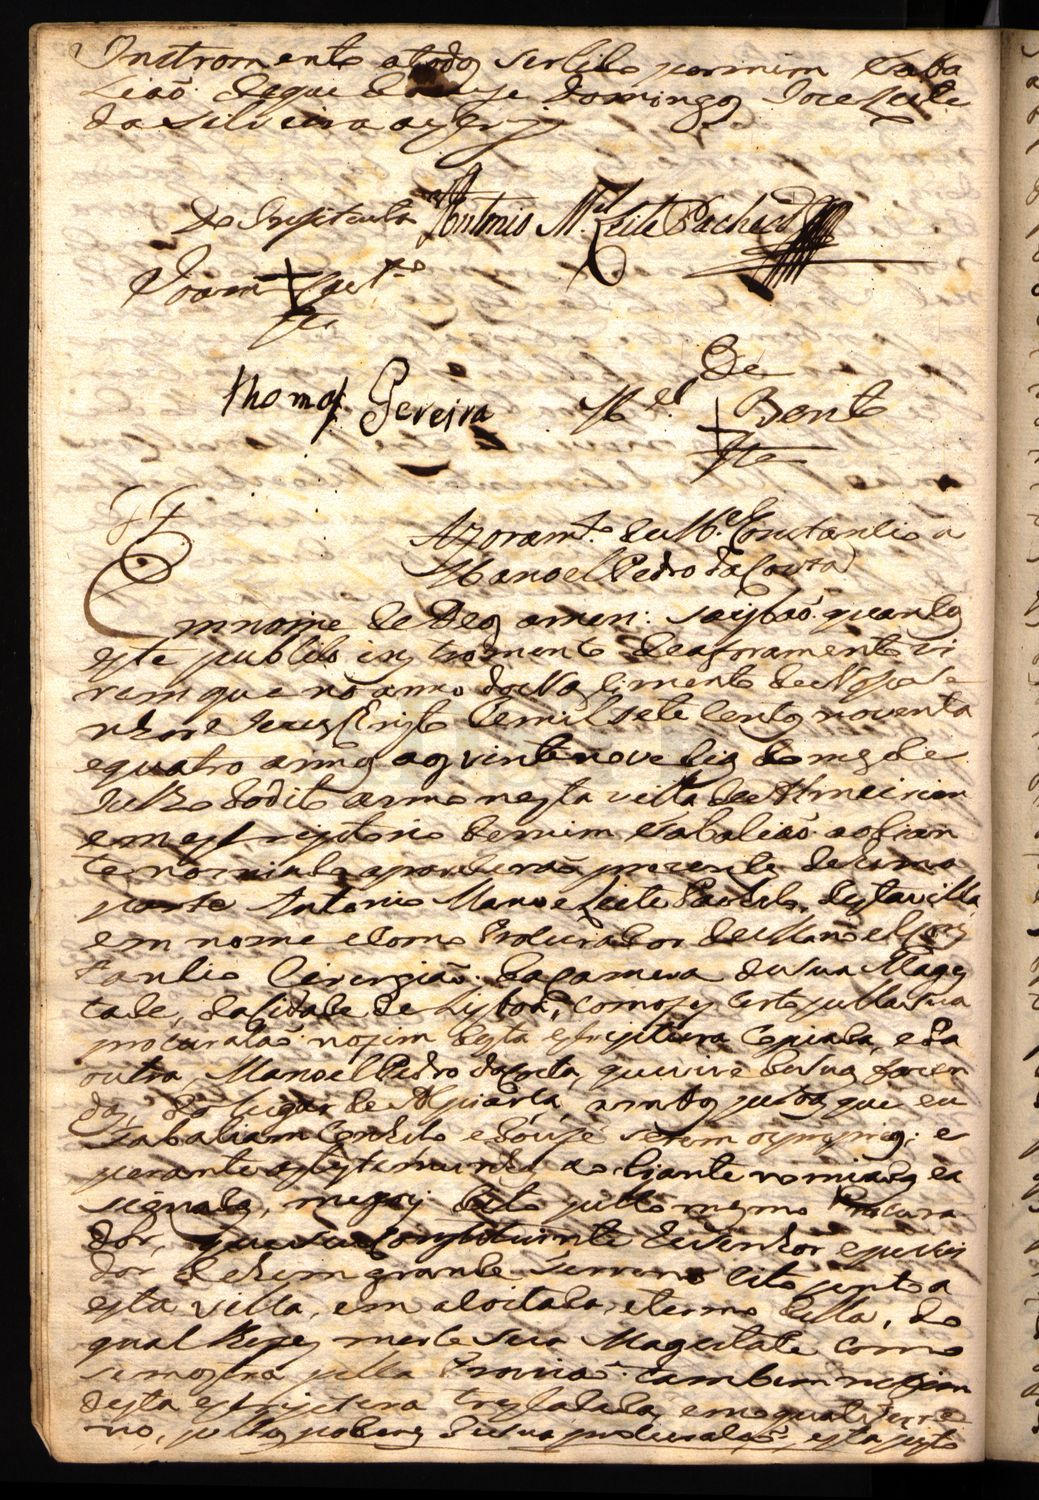 Instromento a todos ser lido por mim Taba
lião de que Domingos Joze Leite
da Silveira a escrevy
De Antonio M.el Leite Pacheco
Joam
Thomas Pereira
De
M.el Bento
Aforam.to de M.el Constancio a
Manoel Pedro da Costa
Em nome de Deos amen: Saibão quantos
este publico instromento de aforamento vi
rem que no anno do Nascimento de Nosso Se
nhor Jesus Cristo de mil sete centos noventa
e quatro annos aos vinte nove dias do mes de
Julho do dito anno nesta villa de Almeirim
e meu escriptorio de mim Tabalião ao dian
te nomiado aparecerão prezentes de huma
parte Antonio Manoel Leite Pacheco, desta villa
em nome e como Procurador de Manoel Cons
tancio Cirurgião da Camera de sua Mages
tade, da Cidade de Lisboa, como fez certo pella sua
procuração no fim desta escriptura copiada, e da
outra, Manoel Pedro da Costa, que vive de sua fazen
da, do lugar de Alpiarça, ambos pessoas que eu
Tabaliam conheço e dou fé serem os proprios: e
perante as testemunhas ao diante nomiadas e a
signadas, me foi dito pello mesmo Procura
dor, que seu constituinte he senhor e pesuhi
dor de hum grande terreno cito junto a
esta villa, em a coitada, e termo della, do
qual lhe fez merce Sua Magestade como
se mostra pella Provizão tambem no fim
desta escriptura tresladada, em o qual terre
no, pellos poderes de sua procuração, esta justo